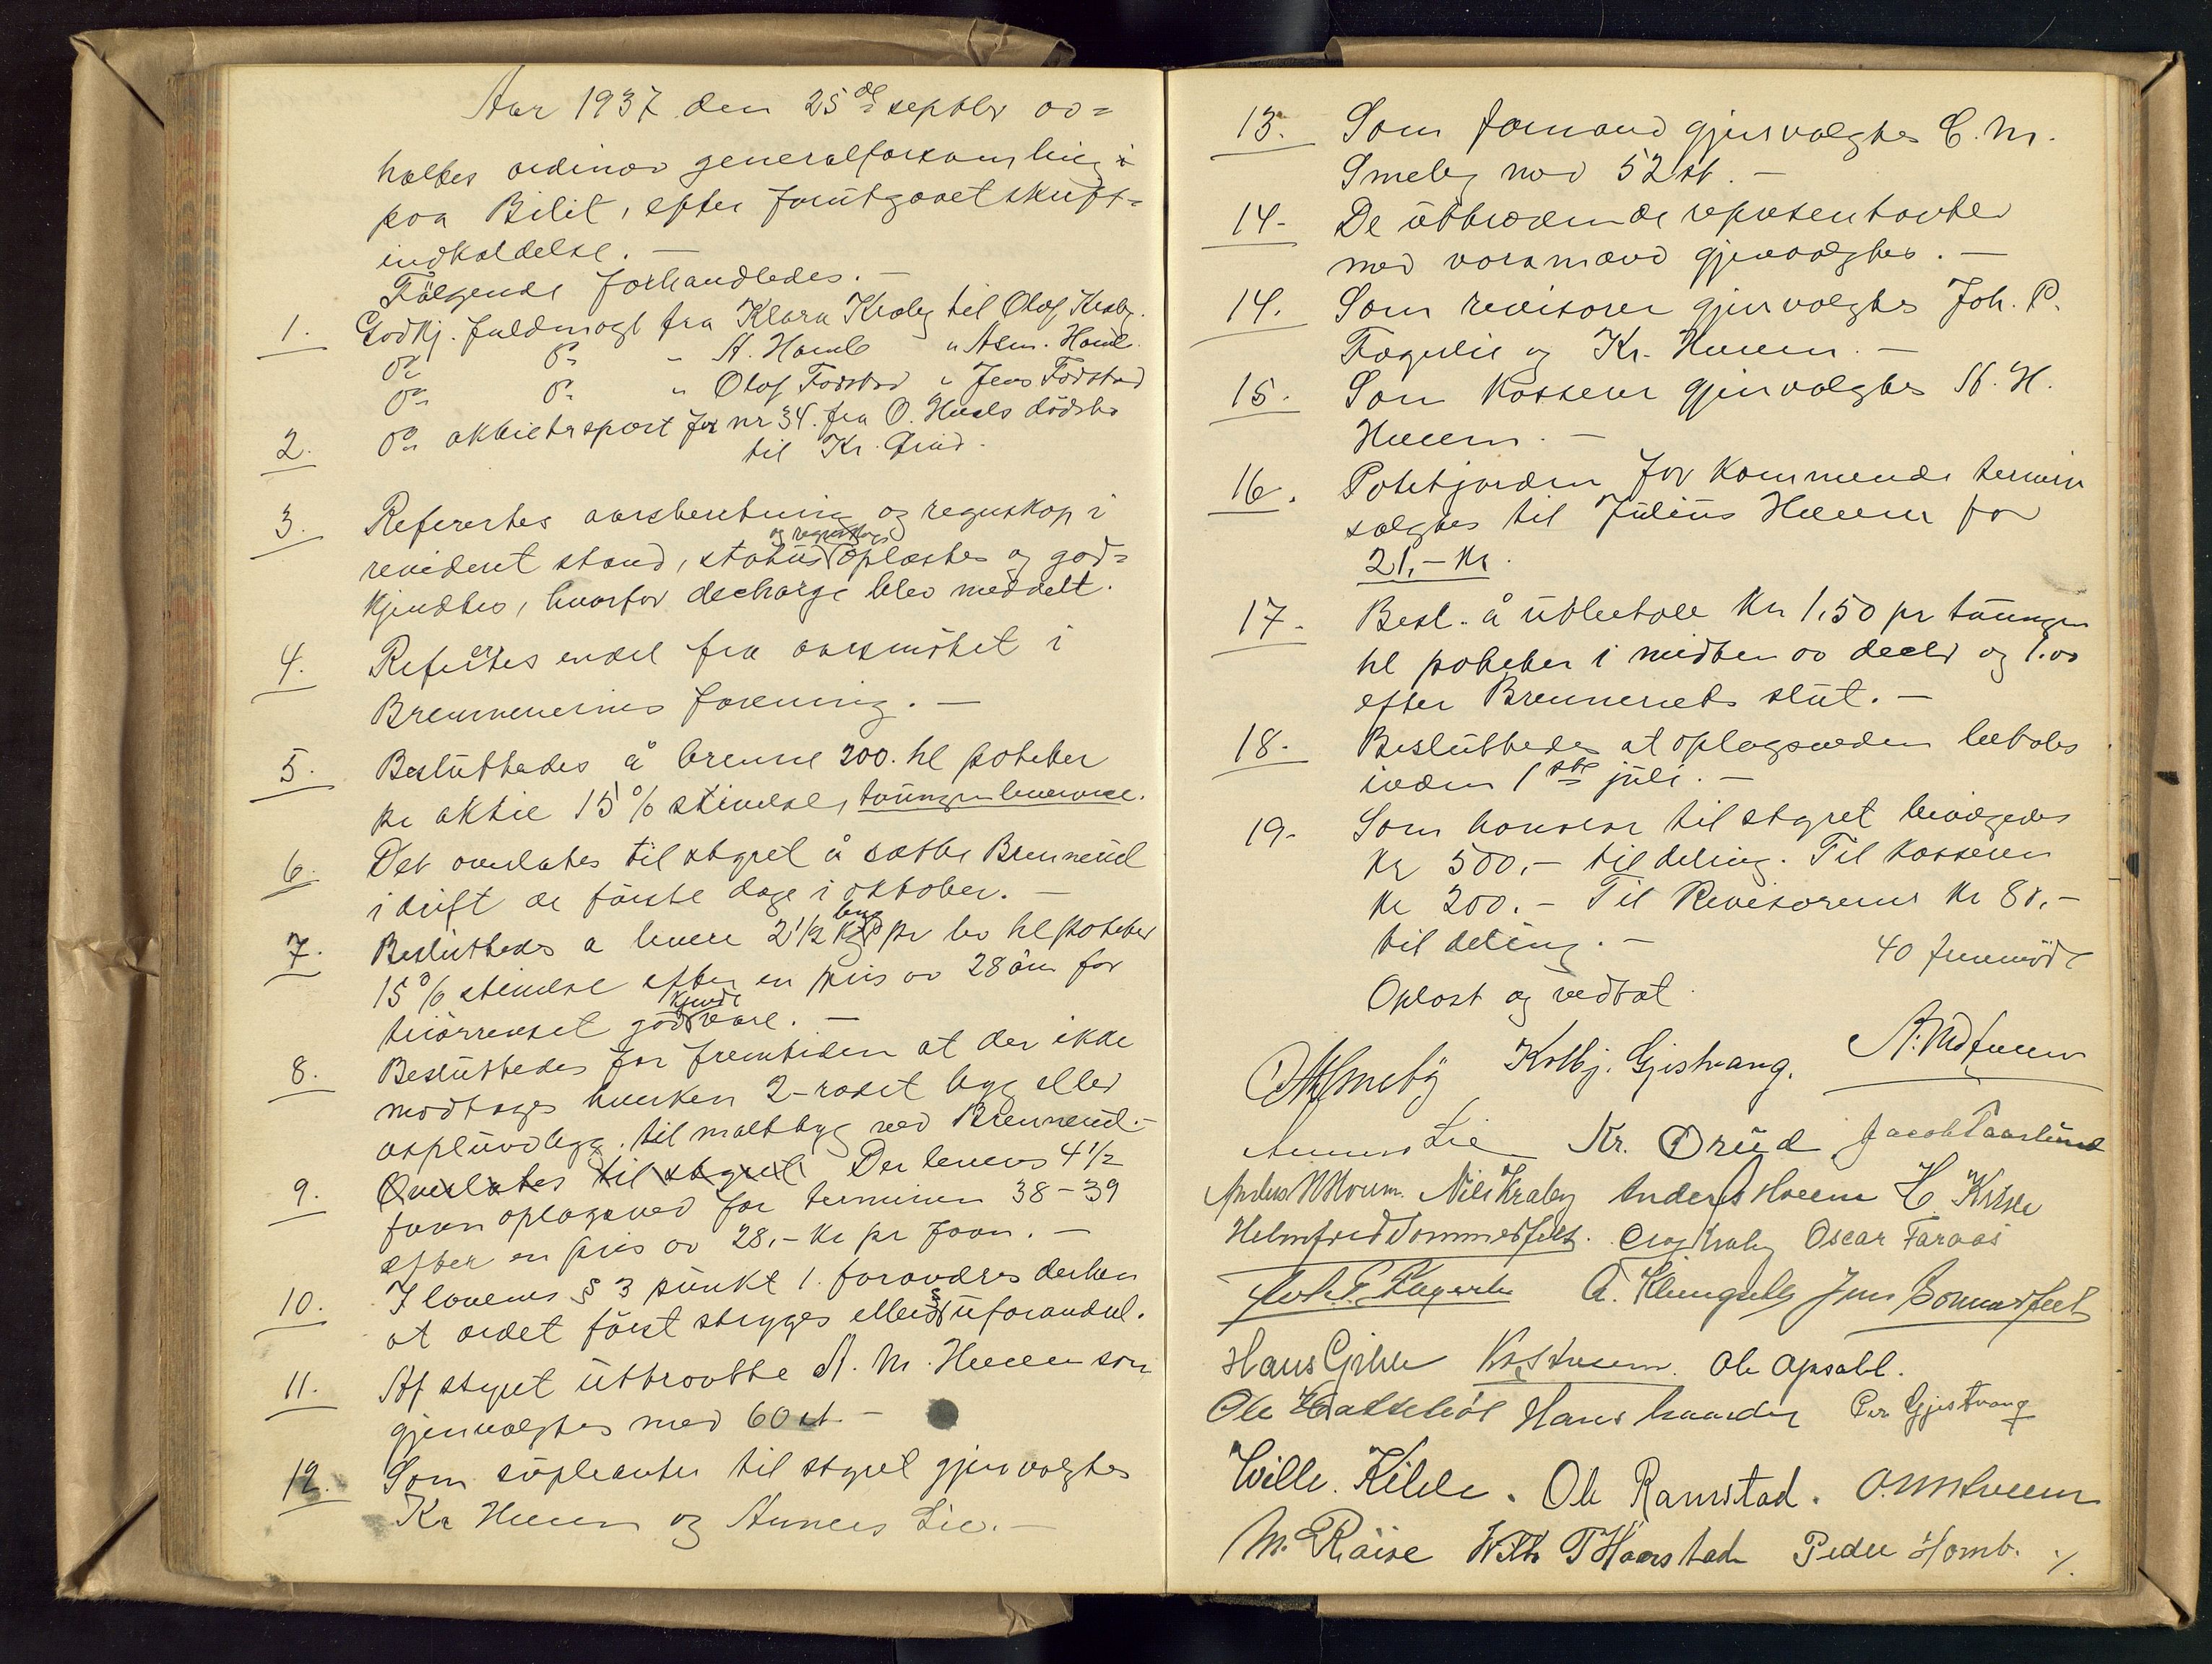 Aar 1937 den 25de septbr av=
holtes ordinær generalforsamling i
paa Bilit, efter forutgaaet skrift=
indkaldelse. —
Følgende forhandledes. —
1. Godkj. fuldmagt fra Klara Kraby til Olaf Kraby.
do do " A. Homb " Alm. Homb.
do do " Olaf Fodstad " Jens Fodstad
2. do aktietransport for nr 34. fra O. Huels dødsbo
til Kr. Drüd.
3. Referertes aarsberetning og regnskap i
revidert stand, status og regnskap oplæstes og god=
kjendtes, hvorfor decharge blev meddelt.
4. Referertes endel fra aarsmøtet i
Brennerienes forening. —
5. Besluttedes å brenne 200. hl poteter
pr aktie 15% stivelse, tvungen leverance.
6. Det overlates til styret å sætte Brenneriet
i drift de første dage i oktober. —
7. Besluttedes a levere 2 1/2 kg byg pr lev hl poteter
15% stivelse efter en pris av 28 øre for
triørrenset god kjendt vare. —
8. Besluttedes for fremtiden at der ikke
modtages hverken 2-radet byg eller
asplundbygg. til maltbyg ved Brenneriet. —
9. Overlates til styret Der leveres 4 1/2
favn oplagsved for terminen 38-39
efter en pris av 28,- kr pr favn. —
10. I lovenes § 3 punkt 1. forandres derhen
at ordet først strykes ellers uforandret.
11. Af styret uttraatte A. M. Hveem som
gjenvalgtes med 60 st. —
12. Som supleanter til styret gjenvalgtes
Kr Hveem og Anners Lie. —
13. Som formand gjenvalgtes C. M.
Smeby med 52 st. —
14. De uttrædende representanter
med varamænd gjenvalgtes. —
14. Som revisorer gjenvalgtes Joh. P.
Fagerlie og Kr. Hveem. —
15. Som kasserer gjenvalgtes A. H.
Hveem. —
16. Potetjorden for kommende termin
solgtes til Julius Hveem for
21,- kr.
17. Besl. å utbetale kr 1,50 pr tvungen
hl poteter i midten av decbr og 1.00
efter Brenneriets slut. —
18. Besluttedes at oplagsveden betales
inden 1ste juli. —
19. Som honorar til styret bevilgedes
kr 500,- til deling. Til kasseren
kr 200.- Til Revisorerne kr 80,-
til deling. —
40 fremmødt
Oplæst og vedtat
CMSmeby Kolbj. Gjestvang. A. M. Hveem
Anners Lie Kr. Drüd Jacob Paaslund
Nils Kraby Anders Hveem H. Krise
Helmfred Sommerfelt. Olaf Kraby Oscar Faraas
Joh. P. Fagerlie A. Klungseth Jens Sommerfelt
Hans Gihle Kr. Hveem. Ole Opsahl.
Ole Per Gjestvang
Wilh. Kihle. Ole Ramstad. O. M. Hveem
M. Röise Wilh Thaarstad Peder Homb. ./.